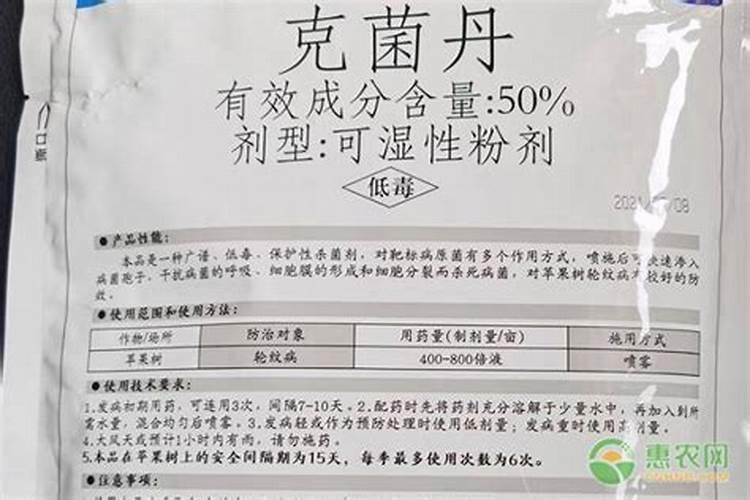 克菌丹
有效成分含量:50%
剂型:可湿性粉剂
低毒
●产品性能:
本品是一种广谱、低毒、保护性杀菌剂,对靶标病原菌有多个作用方式,喷施后可快速渗入
病菌孢子,干扰病菌的呼吸、细胞膜的形成和细胞分裂而杀死病菌,对苹果树轮纹病有较好的防
效。
●使用范围和使用方法:
作物/场所 防治对象 用药量(制剂量/亩) 施用方式
苹果树 轮纹病 400-800倍液 喷雾
●使用技术要求:
1.发病初期用药,可连用3次,间隔7-10天。2.配药时先将药剂充分溶解于少量水中,再加入到所
需水量,混合均匀后喷雾。3.发病轻或作为预防处理时使用低剂量;发病重时使用高剂量。
4.大风天或预计1小时内有雨,请勿施药。
5.本品在苹果树上的安全间隔期为15天,每季最多使用次数为6次。
●注意事项:
惠农网